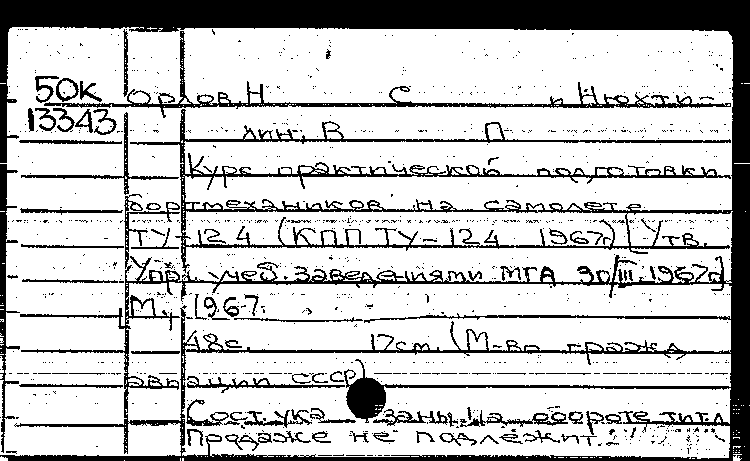 50К Орлов, Н С и Нюхти-
13343 лин, В П
Курс практической подготовки
бортмехаников на самолете
ТУ-124 (КПП ТУ-124 1967г) [Утв.
Упр. учеб. заведениями МГА 9р/III-1967г]
М., 1967.
48с. 17см. (М-во гражд
авиации СССР)
Сост. указаны на обороте тит.л
Продаже не подлежит.